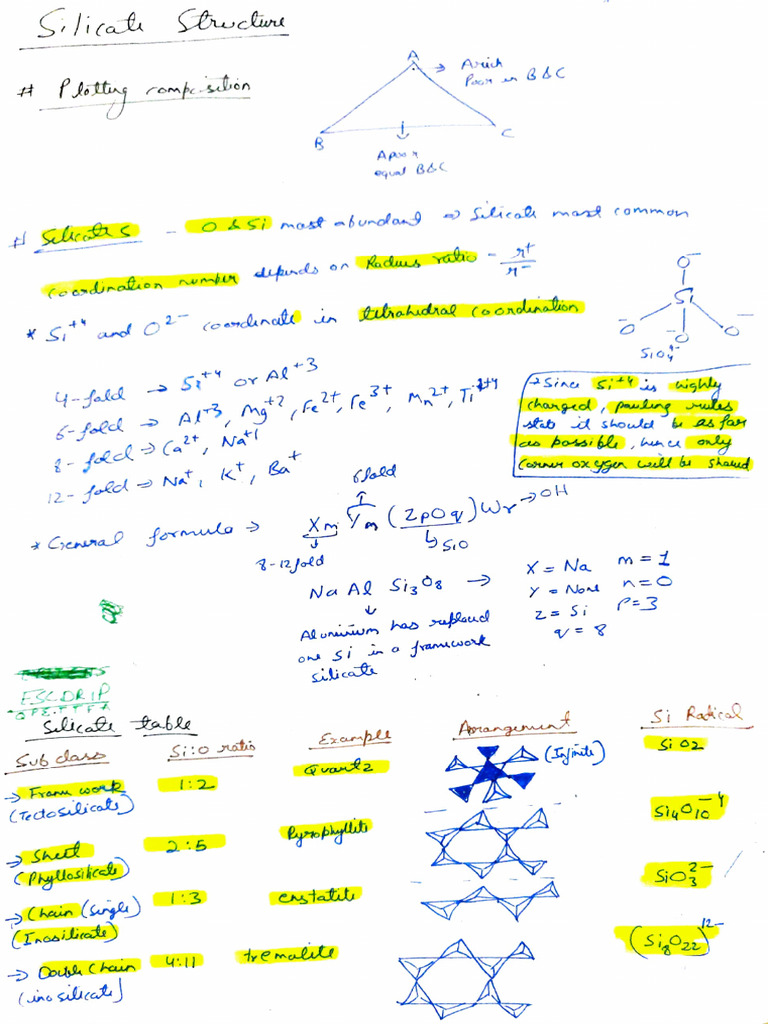 Silicate Structure
# Plotting composition
A → A rich
Poor in B & C
B C
A poor
equal B & C
# Silicates - O & Si most abundant ∞ Silicate most common
coordination number depends on Radius ratio - r+/r-
* Si+4 and O2- coordinate in tetrahidral coordination
O-
Si
-O O- O-
SiO4 4-
4-fold → Si+4 or Al+3
6-fold → Al+3, Mg+2, Fe2+, Fe3+, Mn2+, Ti+4
8-fold → Ca2+, Na+1
12-fold → Na+, K+, Ba+
→ Since Si+4 is highly
charged, pauling rules
state it should be as far
as possible, hence only
corner oxygen will be shared
6 fold
* General formula → Xm Ym (ZpOq) Wr → OH
8-12 fold SiO
Na Al Si3O8 →
X = Na m = 1
Y = None n = 0
Z = Si P = 3
q = 8
Aluminium has replaced
one Si in a framework
silicate
FSCDRIP
Silicate table
Sub class Si:O ratio Example Arrangement Si Radical
→ Frame work 1:2 Quartz (Infinite) SiO2
(Tectosilicate)
→ Sheet 2:5 Pyrophyllite Si4O10 -4
(Phyllosilicate)
→ Chain (single) 1:3 enstatite SiO3 2-
(Inosilicate)
→ Double Chain 4:11 tremolite (Si8O22)12-
(inosilicate)